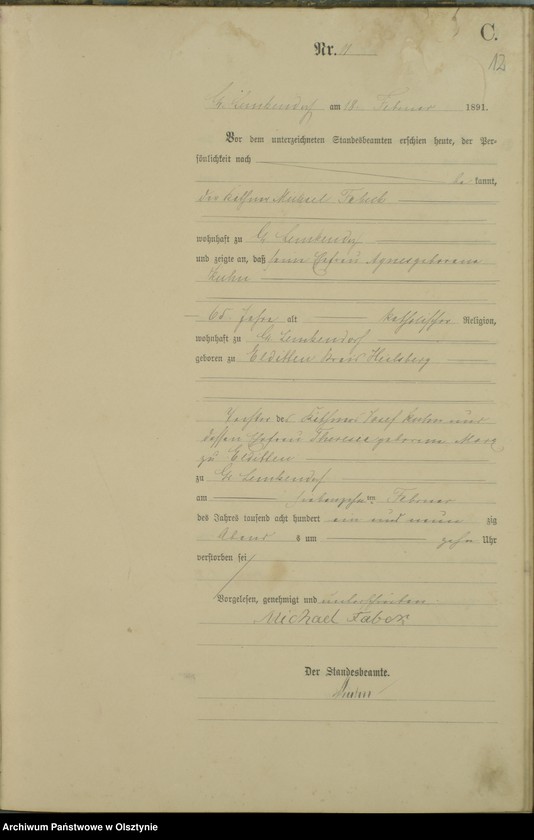 C.
12
Nr. 11
Gr. Lemkendorf am 18. Februar 1891.
Vor dem unterzeichneten Standesbeamten erschien heute, der Per-
sönlichkeit nach
be kannt,
der Käthner Michael
wohnhaft zu Gr. Lemkendorf
und zeigte an, daß seine Ehefrau Agnes geborene
Kuhn
65 Jahre alt katholischer Religion,
wohnhaft zu Gr. Lemkendorf
geboren zu Elditten Kreis Heilsberg
Tochter des Käthners Josef Kuhn und
dessen Ehefrau Theresia geborene
zu Elditten
zu Gr. Lemkendorf
am siebenzehnten Februar
des Jahres tausend acht hundert ein und neun zig
Abend s um zehn Uhr
verstorben sei
Vorgelesen, genehmigt und unterschrieben
Michael
Der Standesbeamte.
Archiwum Państwowe w Olsztynie